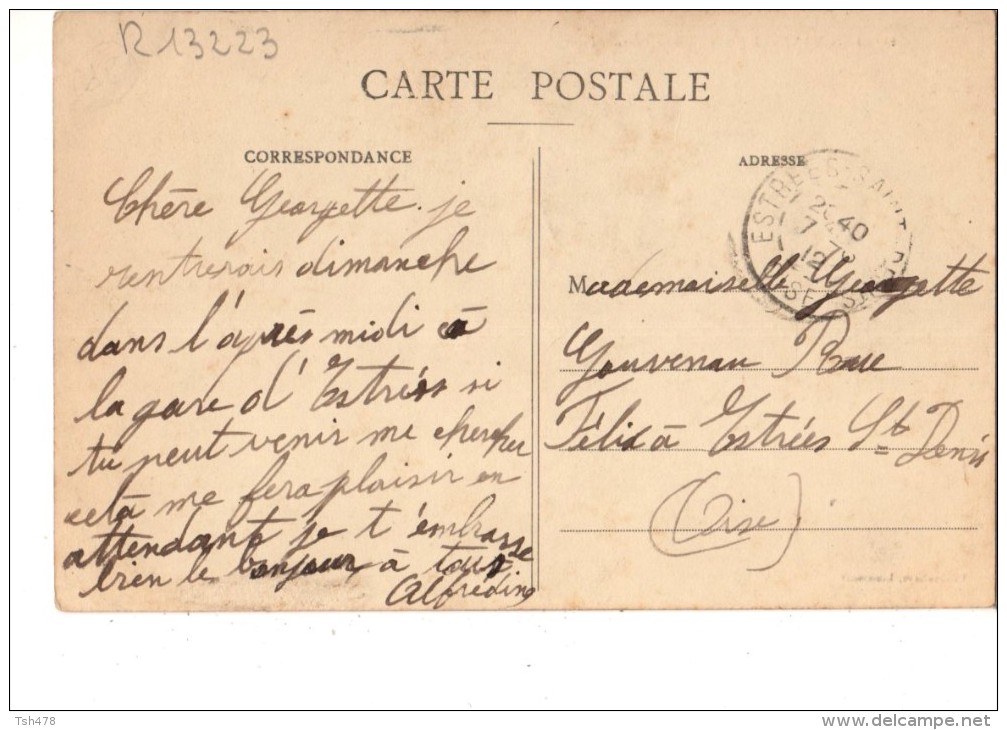 R13223
CARTE POSTALE
CORRESPONDANCE
Chère Georgette je
rentrerais dimanche
dans l'après midi à
la gare d'Estrées si
tu peut venir me chercher
celà me fera plaisir en
attendant je t'embrasse
bien le bonjour à tous
Alfredine
ADRESSE
ESTRÉES-SAINT
20 40
7
12
Mademoiselle Georgette
Gouvenau Rue
Félix à Estrées St Denis
(Oise)
Tsh478
www.delcampe.net